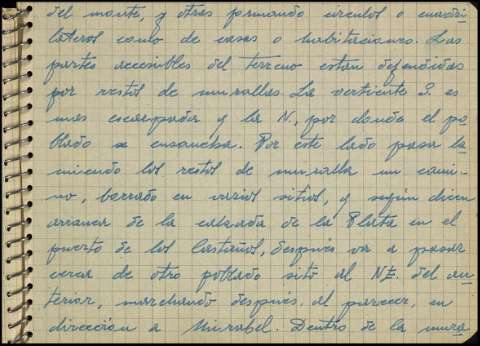 del monte, y otras formando circulos o cuadri-
lateros como de casas o habitaciones. Las
partes accesibles del terreno estan defendidas
por restos de murallas. La vertiente S. es
mas escarpada y la N, por donde el po-
blado se ensancha. Por este lado pasa la-
miendo los restos de muralla un cami-
no, borrado en varios sitios, y según dicen
arranca de la calzada de la Plata en el
puerto de los Castaños, después va a pasar
cerca de otro poblado sito al NE. del an-
terior, marchando después, al parecer, en
direccion a Mirabel. Dentro de la mura-